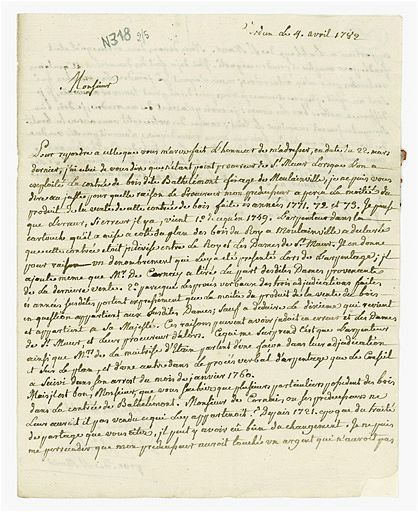 N318 2/5
le 4. avril 1782
Monsieur
Pour repondre a celle que vous m'avez fait l'honneur de m'adresser, en date du 22. mars
dernier, j'ai celui de vous dire que n'étant point procureur de St Maur lorsque l'on a
exploité la contrée de bois dite Bathlémont finage de Moulainville, je ne puis vous
dire au juste pour quelle raison le Procureur mon predecesseur a perçu la moitié du
produit de la vente de cette contrée de bois faite es années 1771. 72 et 73. Je pense
que l'erreur, si erreur il y a, vient 1°. de ce qu'en 1749. l'arpenteur dans le
cartouche qu'il a mis a coté du plan des bois du Roy a Moulainville a declaré
que cette contrée etoit indivise entre le Roy et les Dames de St Maur. Il en donne
pour raison un denombrement qui luy a eté presenté lors de l'arpentage, il
ajoute meme que Mr. de a tiré la part desdites Dames provenante
de la derniere vente. 2°. parceque les procès verbaux des trois adjudications faites
es années susdites portent expressement que la moitié du produit de la vente des bois
en question appartient aux susdites Dames, sauf a deduire le dixieme qui revient
et appartient a Sa Majesté. Ces raisons peuvent avoir induit en erreur et les Dames
de St Maur, et leur procureur d'alors. Ce qui me surprend c'est que l'arpenteur
ainsi que Mrs. de la maitrise d'Etain parlent d'une façon dans leur adjudication
et sur le plan, et d'une autre dans le procès verbal d'arpentage que le Conseil
a suivi dans son arrest du mois de janvier 1760.
Mais il est bon, Monsieur, que vous sachiez que plusieurs particuliers possedent des bois
dans la contrée de Bathelémont. Monsieur de ou ses predecesseurs ne
leur auroit il pas vendu ce qui leur appartenoit. 2° depuis 1721. epoque du traité
de partage que vous citez, il peut y avoir eu bien du changement. Je ne puis
me persuader que mon predecesseur auroit touché un argent qui n'auroit pas